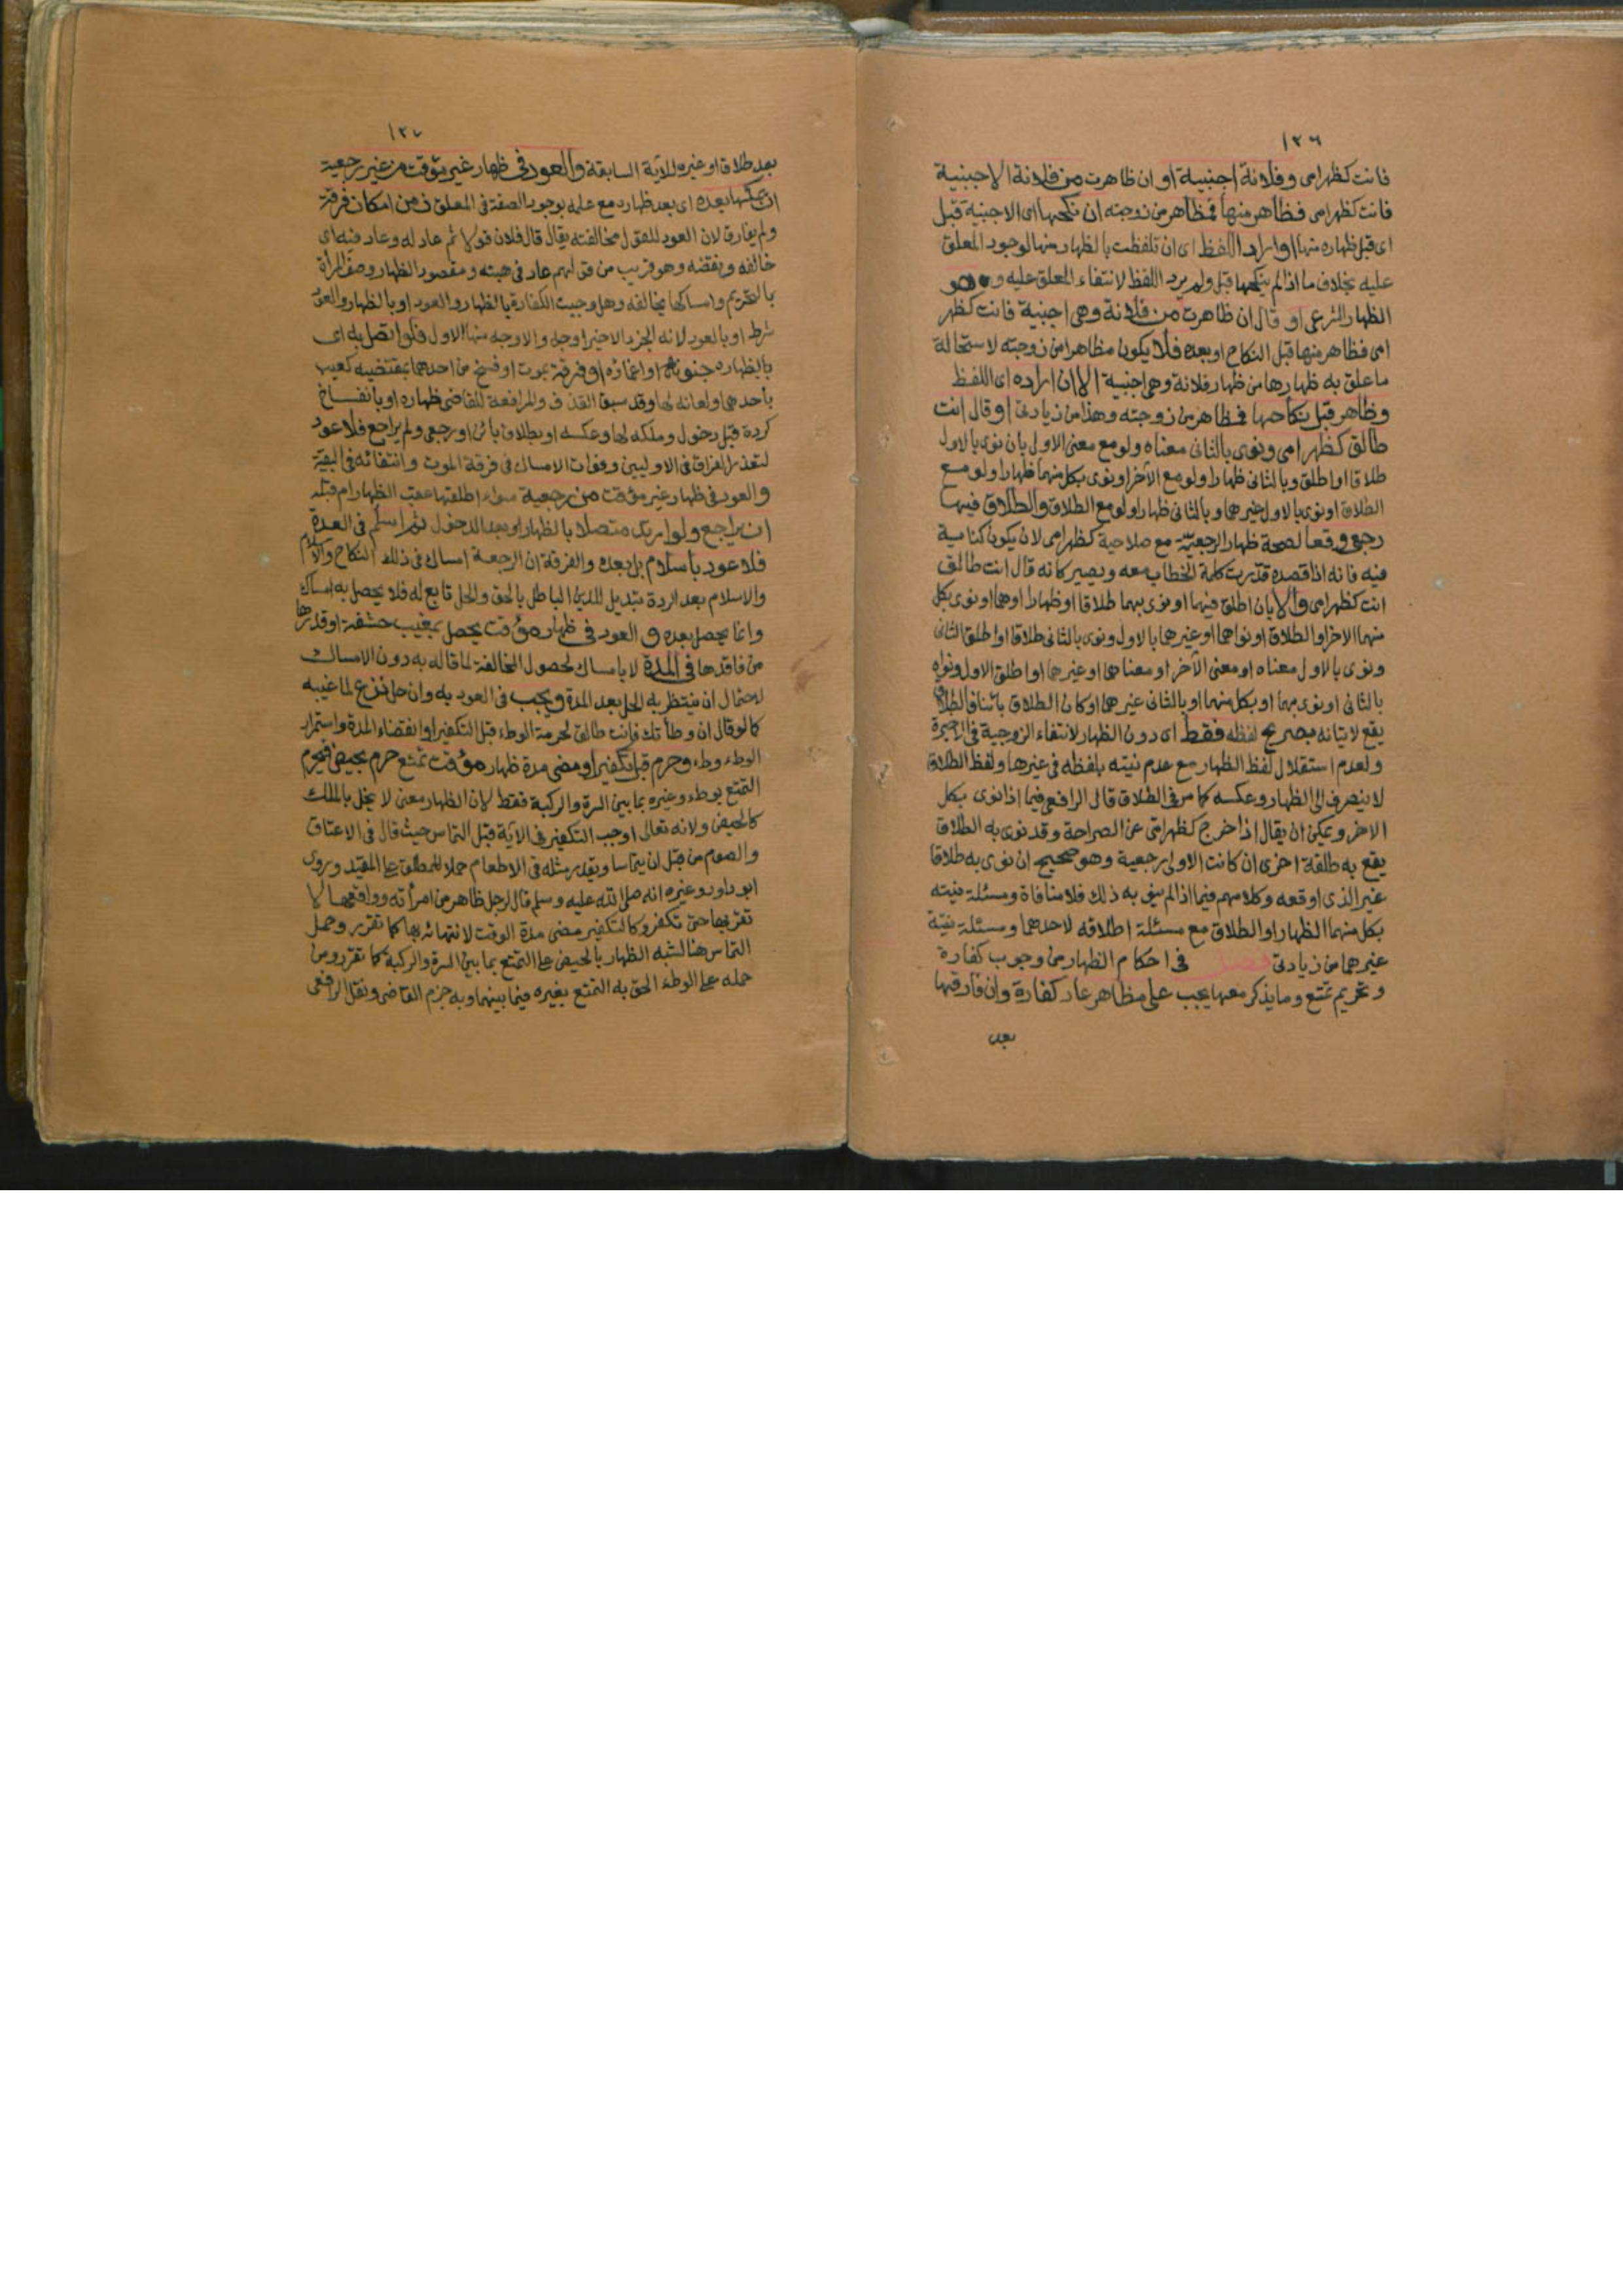 ١٢٦
فانت كظهر امى وفلانة اجنبية او ان ظاهرت من فلانة الاجنبية
فانت كظهر امى فظاهر منها فمظاهر من زوجته ان نكحها اى الاجنبية قبل
اى قبل ظهاره منها او اراد اللفظ اى ان تلفظت بالظهار منها لوجود المعلق
عليه بخلاف ما اذا لم ينكحها قبل ولم يرد اللفظ لانتفاء المعلق عليه وهو
الظهار الشرعى او قال ان ظاهرت من فلانة وهى اجنبية فانت كظهر
امى فظاهر منها قبل النكاح او بعده فلا يكون مظاهرا من زوجته لاستحالة
ما علق به ظهارها من ظهار فلانة وهى اجنبية الا ان اراده اى اللفظ
وظاهر قبل نكاحها فمظاهر من زوجته وهذا من زيادتى او قال انت
طالق كظهر امى ونوى بالثانى معناه ولو مع معنى الاول بان نوى بالاول
طلاقا او اطلق وبالثانى ظهارا ولو مع الآخر او نوى بكل منهما ظهارا ولو مع
الطلاق او نوى بالاول غيرهما وبالثانى ظهارا ولو مع الطلاق والطلاق فيها
رجعى وقعا لصحة ظهار الرجعية مع صلاحية كظهر امى لان يكون كناية
فيه فانه اذا قصده قدرت كلمة الخطاب معه ويصير كانه قال انت طالق
انت كظهر امى والا بان اطلق فيهما او نوى بهما طلاقا او ظهارا او هما او نوى بكل
منهما الاخر او الطلاق او نواهما او غيرهما بالاول ونوى بالثانى طلاقا او اطلق الثانى
ونوى بالاول معناه او معنى الآخر او معناهما او غيرهما او اطلق الاول ونواه
بالثانى او نوى بهما او بكل منهما او بالثانى غيرهما او كان الطلاق بائنا فالطلاق
يقع لاتيانه بصريح لفظه فقط اى دون الظهار لانتفاء الزوجية فى الاخيرة
ولعدم استقلال لفظ الظهار مع عدم نيته بلفظه فى غيرها ولفظ الطلاق
لا ينصرف الى الظهار وعكسه كما مر فى الطلاق قال الرافعى فيما اذا نوى بكل
الاخر ويمكن ان يقال اذا خرج كظهر امى عن الصراحة وقد نوى به الطلاق
يقع به طلقة اخرى ان كانت الاولى رجعية وهو صحيح ان نوى به طلاقا
غير الذى اوقعه وكلامهم فيما اذا لم ينو به ذلك فلا منافاة ومسئلة نيته
بكل منهما الظهار او الطلاق مع مسئلة اطلاقه لاحدهما ومسئلة نية
غيرهما من زيادتى فصل فى احكام الظهار من وجوب كفارة
وتحريم تمتع وما يذكر معها يجب على مظاهر عاد كفارة وان فارقها
بعد
١٢٧
بعد طلاقا او غيره للآية السابقة والعود فى ظهار غير مؤقت من غير رجعية
ان يمسكها بعده اى بعد ظهاره مع علمه بوجود الصفة فى المعلق زمن امكان فرقة
ولم يفارق لان العود للقول مخالفته يقال قال فلان قولا ثم عاد له وعاد فيه اى
خالفه ونقضه وهو قريب من قولهم عاد فى هبته ومقصود الظهار وصف المرأة
بالتحريم وامساكها يخالفه وهل وجبت الكفارة بالظهار والعود او بالظهار والعود
شرط او بالعود لانه الجزء الاخير اوجه والاوجه منها الاول فلو اتصل به اى
بالظهاره جنونه او اغماؤه او فرقة بموت او فسخ من احدهما بمقتضيه كعيب
باحدهما ولعانه لها وقد سبق القذف والمرافعة للقاضى ظهاره او بانفساخ
كردة قبل دخول وملكه لها وعكسه او بطلاق بائن او رجعى ولم يراجع فلا عود
لتعذر الفراق فى الاوليين وفوات الامساك فى فرقة الموت وانتفائه فى البقية
والعود فى ظهار غير مؤقت من رجعية سواء اطلقتها عقب الظهار ام قبله
ان يراجع ولو ارتد متصلا بالظهار او بعد الدخول ثم اسلم فى العدة
فلا عود باسلام بل بعده والفرقة ان الرجعة امساك فى ذلك النكاح والاسلام
والاسلام بعد الردة تبديل للدين الباطل بالحق والحل تابع له فلا يحصل به امساك
وانما يحصل بعده و العود فى ظهار مؤقت يحصل بمغيب حشفة او قدرها
من فاقدها فى المدة لا بامساك لحصول المخالفة لما قاله به دون الامساك
لاحتمال ان ينتظر به الحل بعد المدة ويجب فى العود به وان حل نزع لما غيبه
كما لو قال ان وطأتك فانت طالق لحرمة الوطء قبل التكفير او انقضاء المدة واستمرار
الوطء وطء وحرم قبل تكفير او مضى مدة ظهار مؤقت تمتع حرم بحيض فيحرم
التمتع بوطء وغيره بما بين السرة والركبة فقط لان الظهار معنى لا يخل بالملك
كالحيض ولانه تعالى اوجب التكفير فى الآية قبل التماس حيث قال فى الاعتاق
والصوم من قبل ان يتماسا ويقدر مثله فى الاطعام حملا للمطلق على المقيد وروى
ابو داود وغيره انه صلى الله عليه وسلم قال لرجل ظاهر من امرأته وواقعها لا
تقربها حتى تكفر وكالتكفير مضى مدة الوقت لانتهائه بها كما تقرر وحمل
التماس هنا لشبه الظهار بالحيض على التمتع بما بين السرة والركبة كما تقرر ومن
حمله على الوطء الحق به التمتع بغيره فيما بينهما وبه جزم القاضى ونقل الرافعى